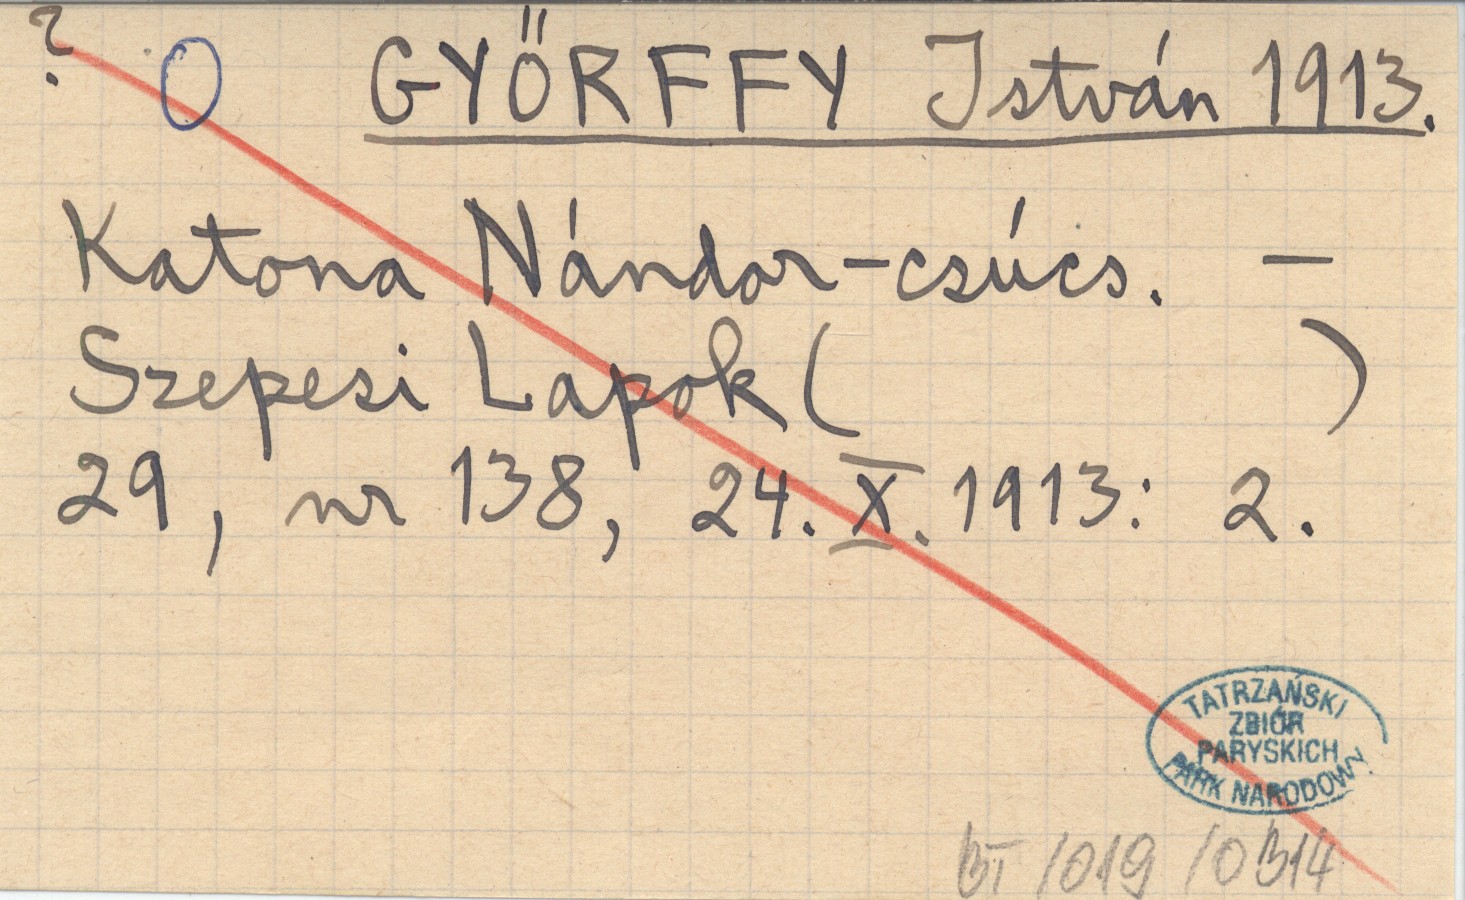 ? O GYŐRFFY István 1913.
Katona Nándor-csúcs. —
Szepesi Lapok ( )
29, nr 138, 24. X. 1913: 2.
TATRZAŃSKI
ZBIÓR
PARYSKICH
PARK NARODOWY
BT /019 /0314